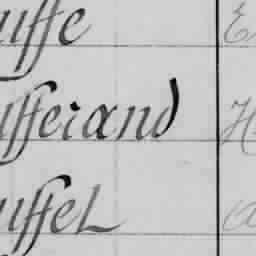 uffe E
ufferand H
uffel a